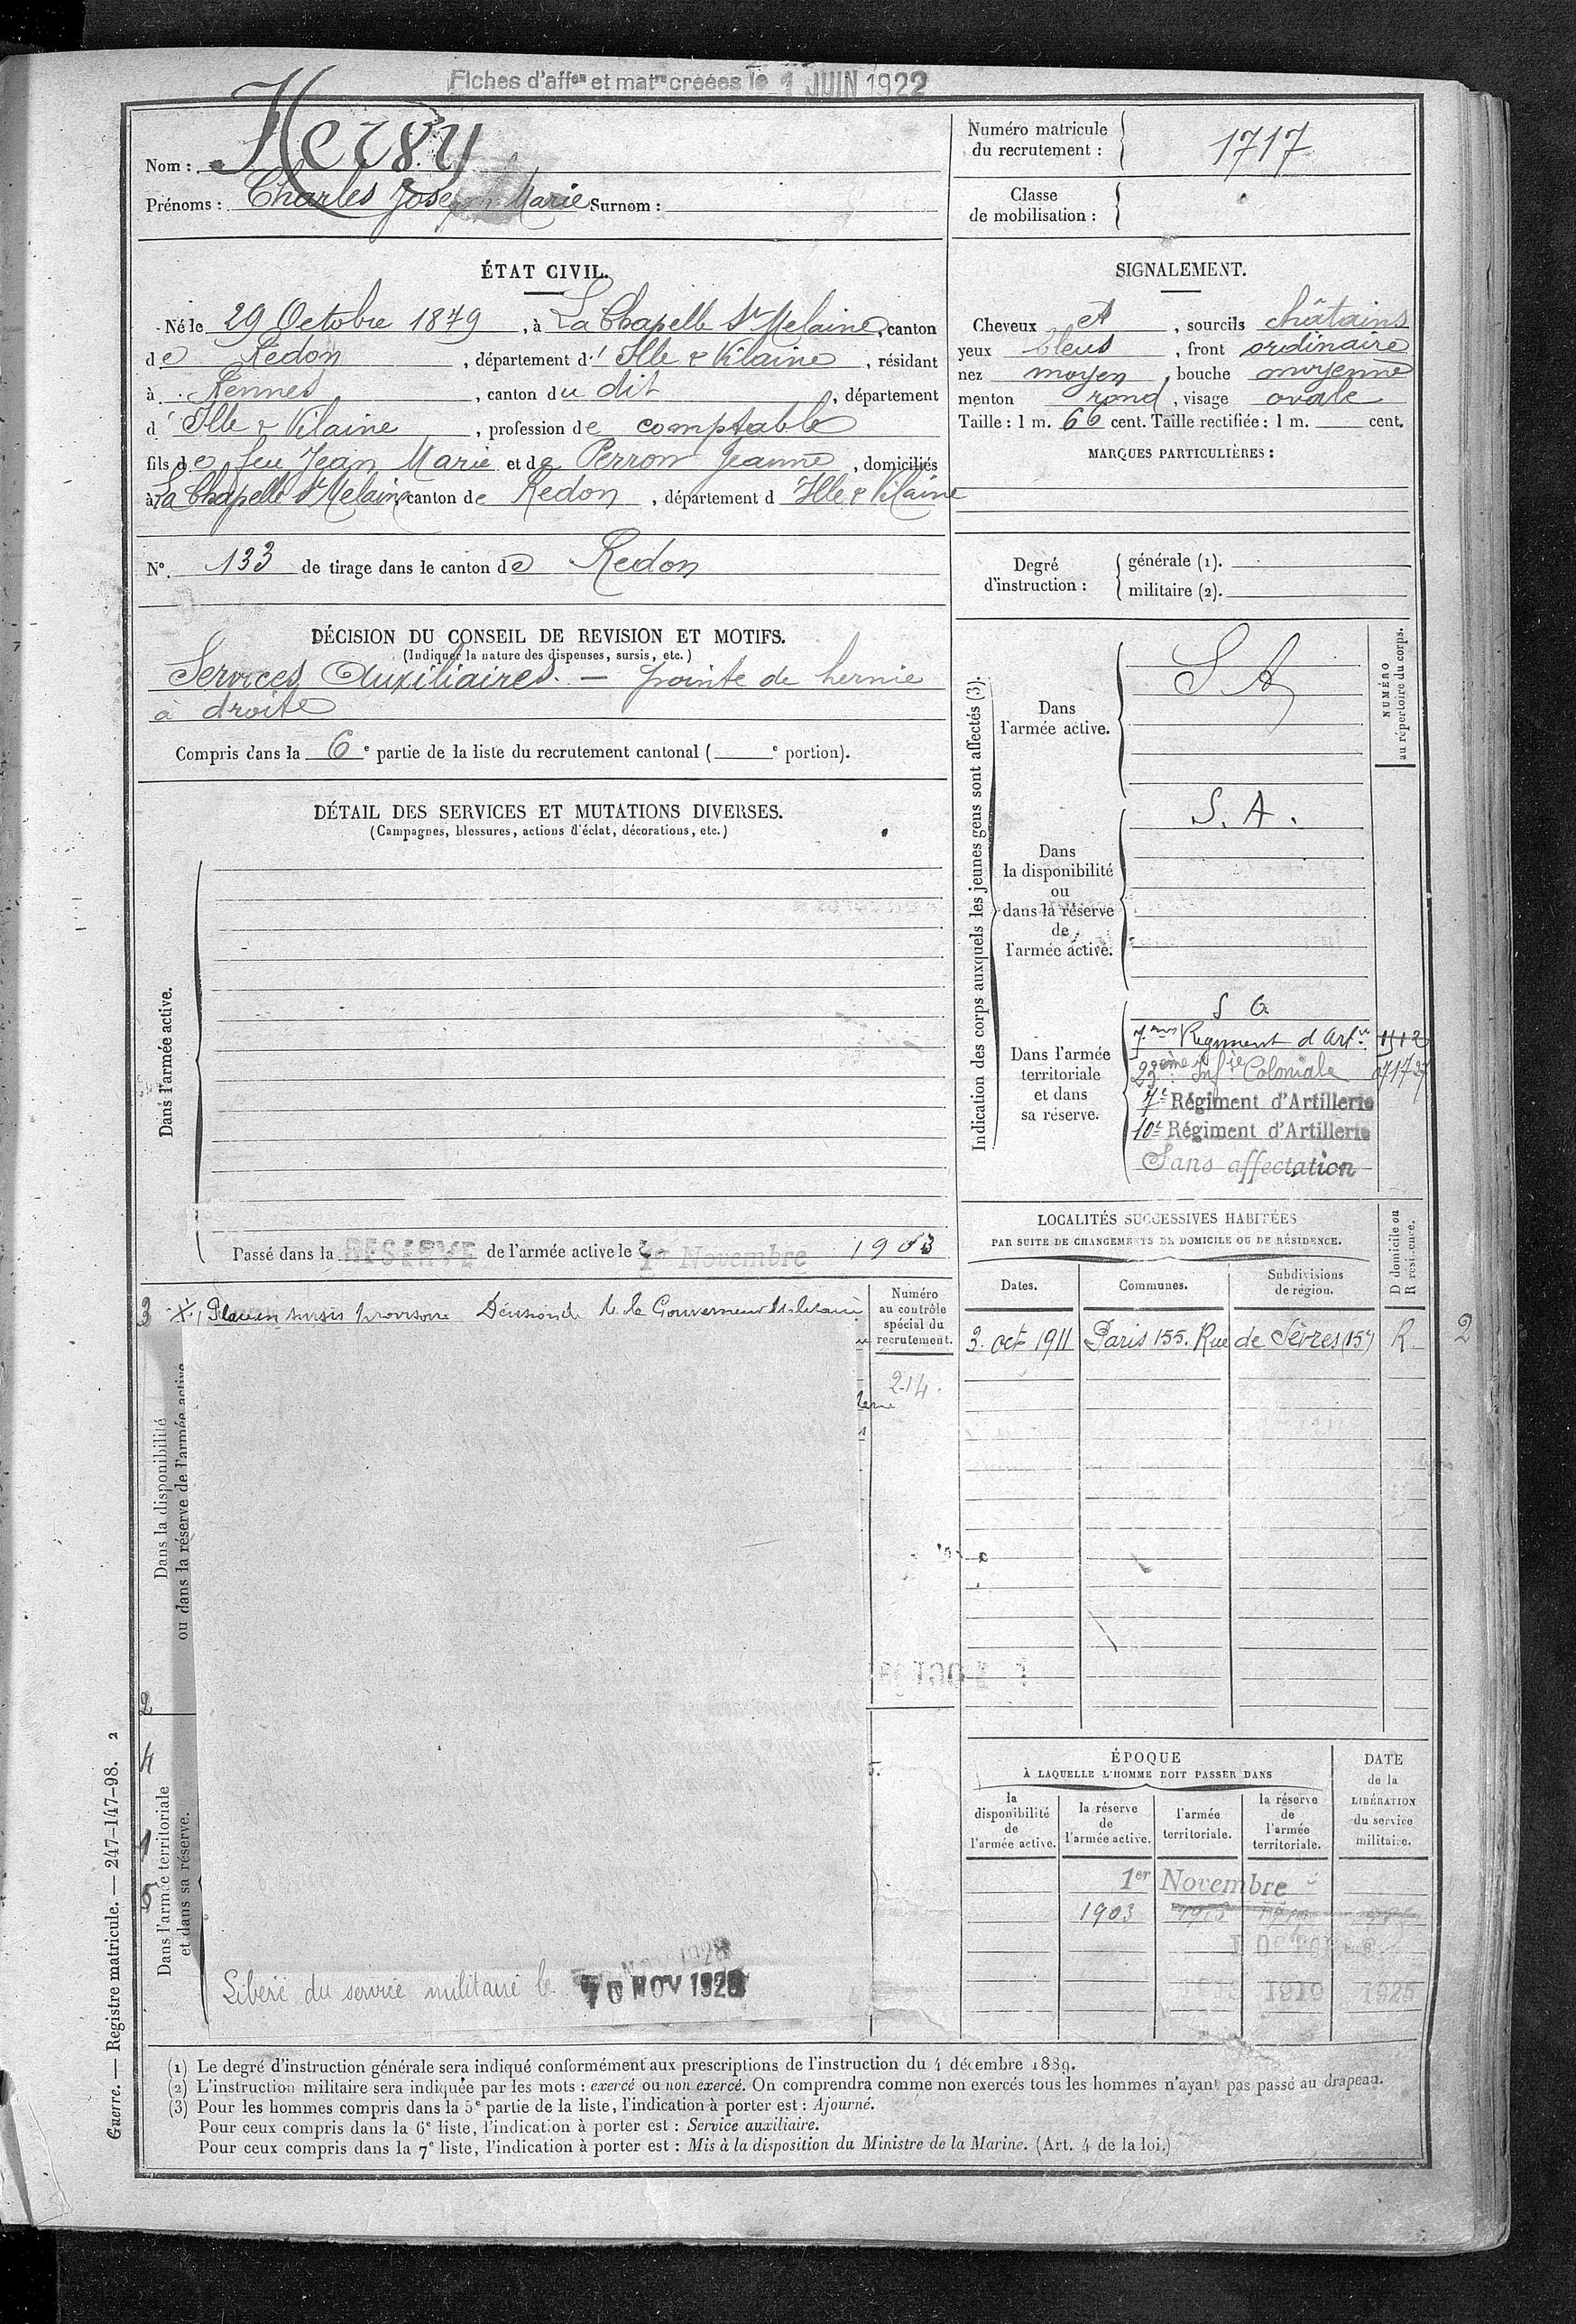 Fiches d'affon et matre créées le 1 JUIN 1922
Nom : Hervy
Prénoms : Charles Joseph Marie Surnom :
Numéro matricule du recrutement : 1717
Classe de mobilisation :
ÉTAT CIVIL.
Né le 29 Octobre 1879, à La Chapelle St Melaine, canton
de Redon, département d' Ille & Vilaine, résidant
à Rennes, canton du dit, département
d' Ille & Vilaine, profession de comptable
fils de feu Jean Marie et de Perron Jeanne, domiciliés
à La Chapelle St Melaine canton de Redon, département d Ille & Vilaine
N°. 133 de tirage dans le canton de Redon
SIGNALEMENT.
Cheveux et, sourcils châtains
yeux bleus, front ordinaire
nez moyen, bouche moyenne
menton rond, visage ovale
Taille : 1 m. 66 cent. Taille rectifiée : 1 m. cent.
MARQUES PARTICULIÈRES :
Degré d'instruction :
générale (1).
militaire (2).
DÉCISION DU CONSEIL DE REVISION ET MOTIFS.
(Indiquer la nature des dispenses, sursis, etc.)
Services Auxiliaires. — pointe de hernie
à droite
Compris dans la 6e partie de la liste du recrutement cantonal ( e portion).
DÉTAIL DES SERVICES ET MUTATIONS DIVERSES.
(Campagnes, blessures, actions d'éclat, décorations, etc.)
Dans l'armée active.
Passé dans la RESERVE de l'armée active le 1er Novembre 1903
3 Placé en sursis provisoire Décision de M. le Gouverneur Militaire
Numéro
au contrôle
spécial du
recrutement.
214.
Dans la disponibilité
ou dans la réserve de l'armée active
2
4
1
5
Dans l'armée territoriale
et dans sa réserve.
Libéré du service militaire le 10 NOV 1928
Indication des corps auxquels les jeunes gens sont affectés (3).
NUMÉRO
au répertoire du corps.
Dans
l'armée active.
S A
Dans
la disponibilité
ou
dans la réserve
de
l'armée active.
S. A.
Dans l'armée
territoriale
et dans
sa réserve.
S A
7ème Régiment d'Artie
23ème Infie Coloniale
7e Régiment d'Artillerie
10e Régiment d'Artillerie
Sans affectation
LOCALITÉS SUCCESSIVES HABITÉES
PAR SUITE DE CHANGEMENTS DE DOMICILE OU DE RÉSIDENCE.
D domicile ou
R résidence.
Dates.
Communes.
Subdivisions
de région.
3. oct 1911 Paris 155. Rue de Sèvres (15e) R. 2
ÉPOQUE
À LAQUELLE L'HOMME DOIT PASSER DANS
la
disponibilité
de
l'armée active.
la réserve
de
l'armée active.
l'armée
territoriale.
la réserve
de
l'armée
territoriale.
DATE
de la
LIBÉRATION
du service
militaire.
1er Novembre
1903
1919 1925
Guerre. — Registre matricule. — 247-147-98. 2
(1) Le degré d'instruction générale sera indiqué conformément aux prescriptions de l'instruction du 4 décembre 1889.
(2) L'instruction militaire sera indiquée par les mots : exercé ou non exercé. On comprendra comme non exercés tous les hommes n'ayant pas passé au drapeau.
(3) Pour les hommes compris dans la 5e partie de la liste, l'indication à porter est : Ajourné.
Pour ceux compris dans la 6e liste, l'indication à porter est : Service auxiliaire.
Pour ceux compris dans la 7e liste, l'indication à porter est : Mis à la disposition du Ministre de la Marine. (Art. 4 de la loi.)